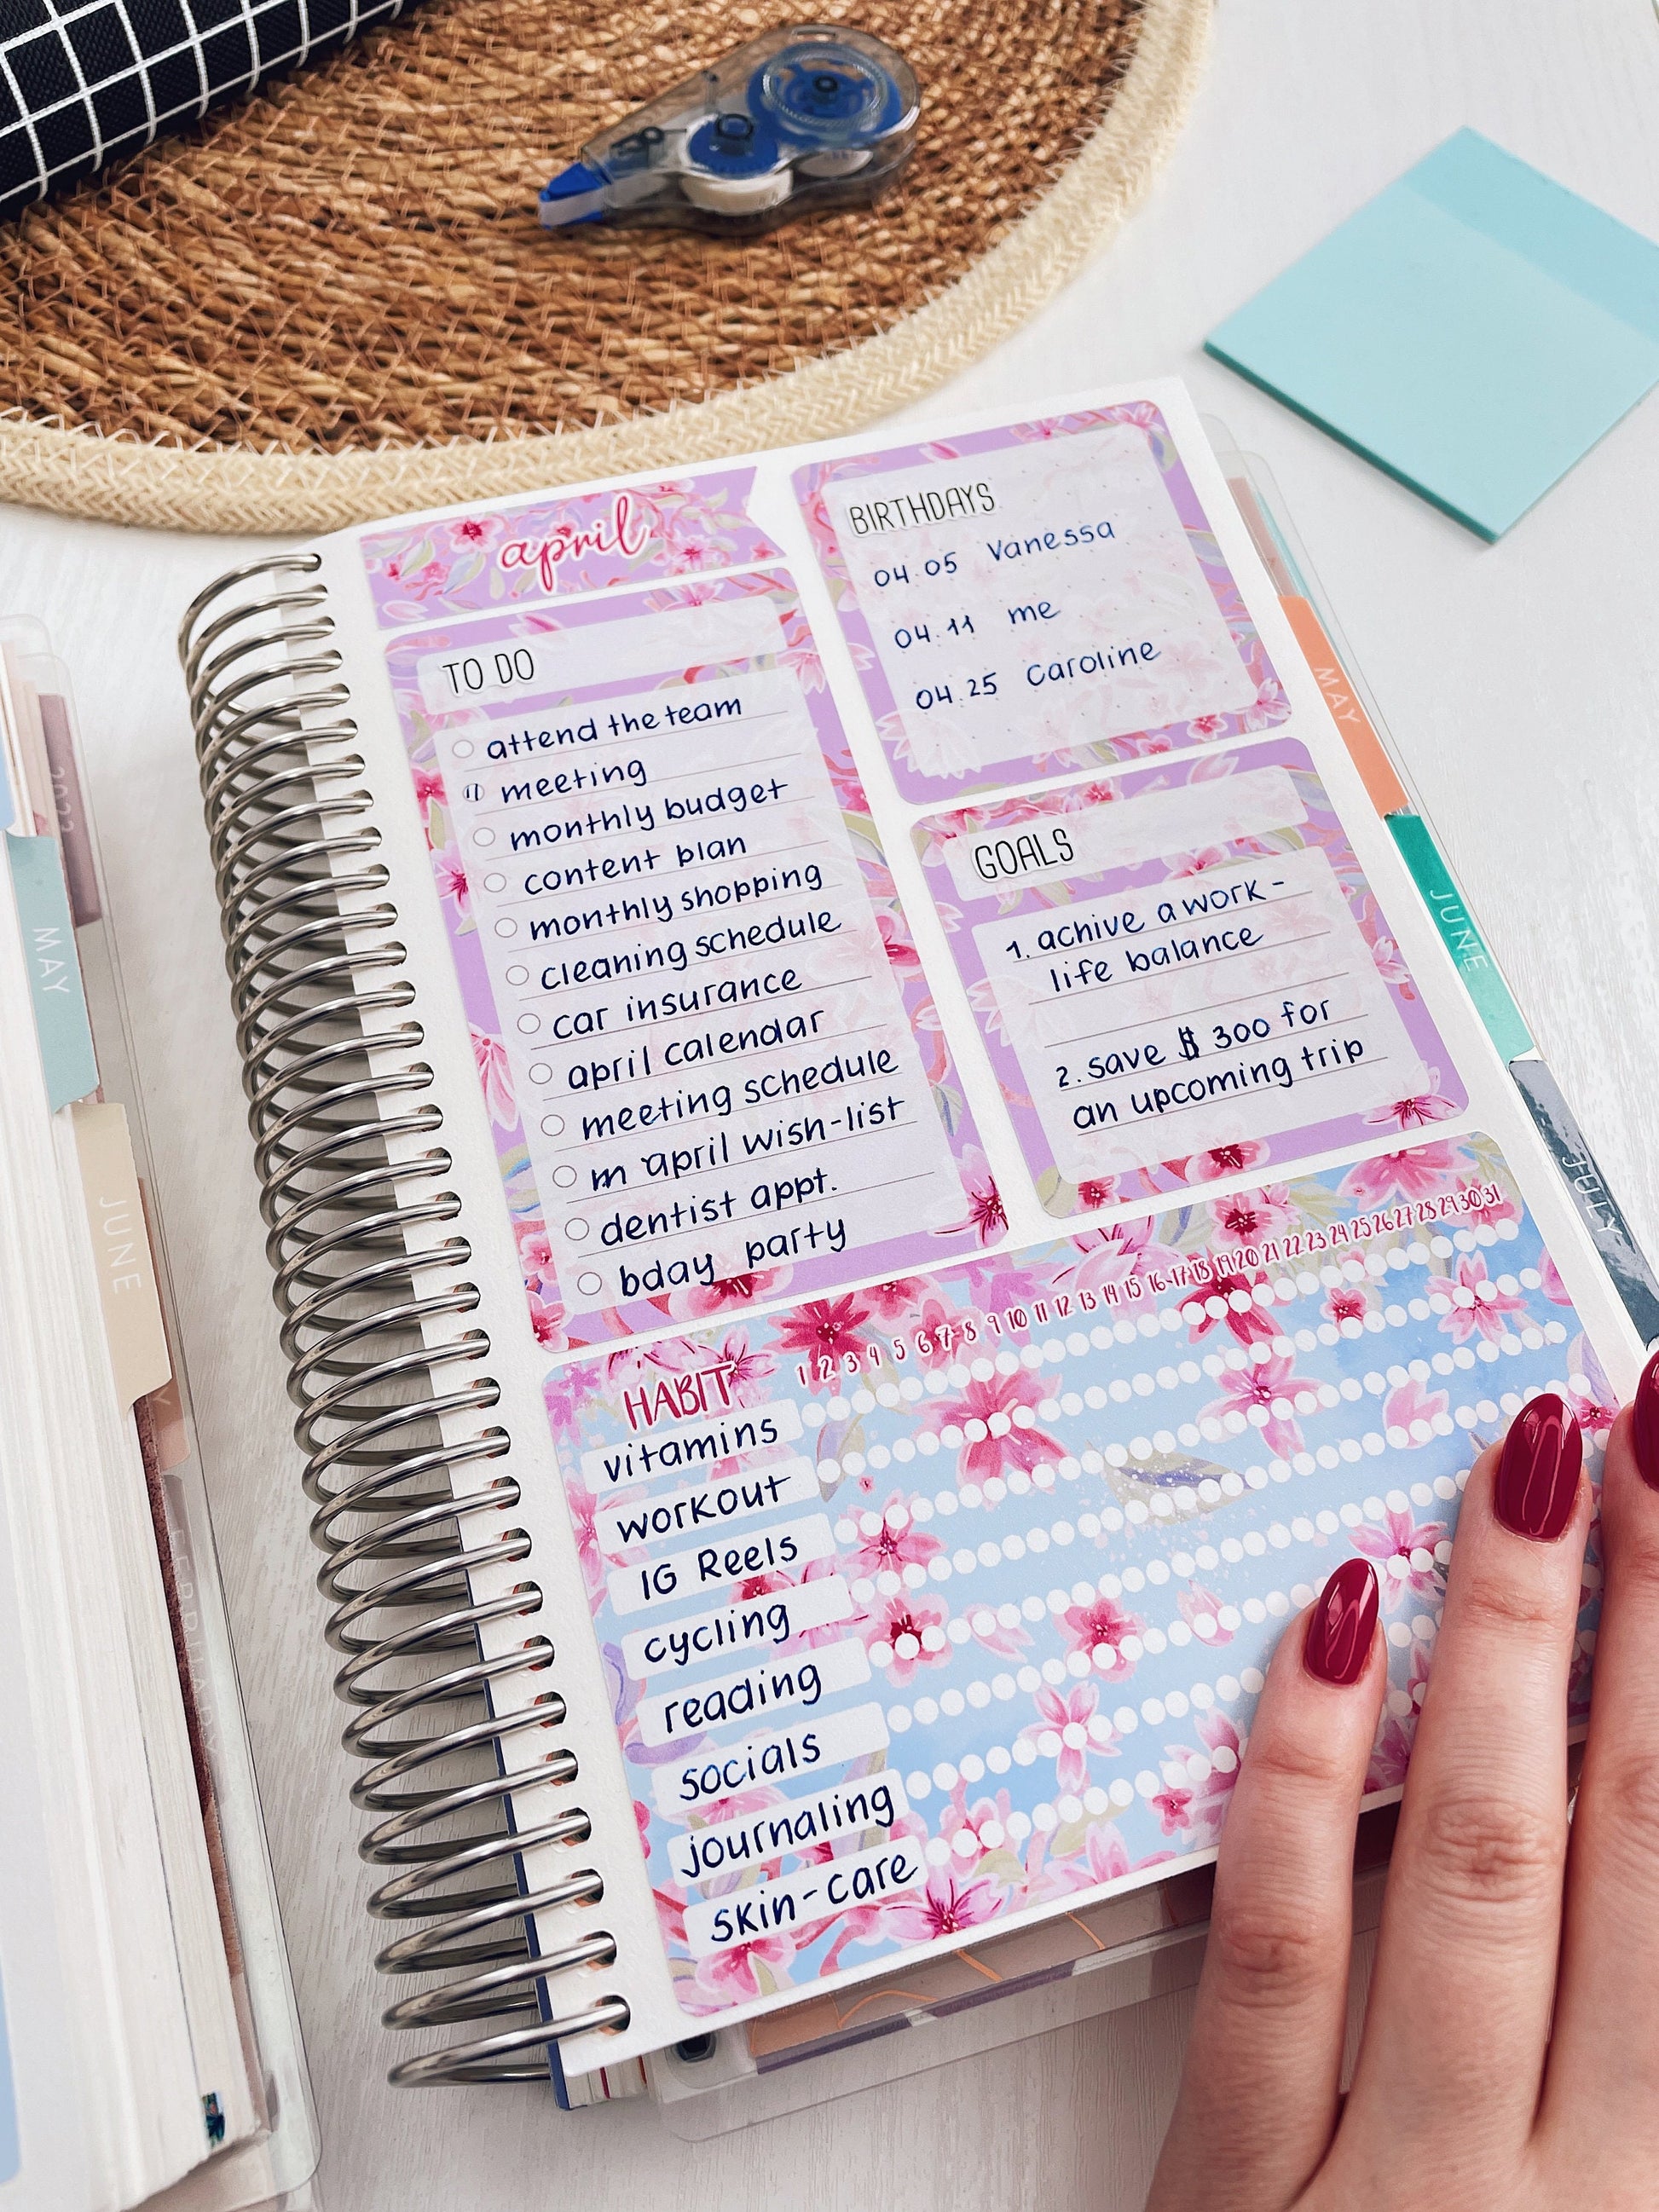 april
TO DO
attend the team
meeting
monthly budget
content plan
monthly shopping
cleaning schedule
car insurance
april calendar
meeting schedule
m april wish-list
dentist appt.
bday party
BIRTHDAYS
04.05 Vanessa
04.11 me
04.25 Caroline
GOALS
1. achive a work-
life balance
2. save $ 300 for
an upcoming trip
HABIT
1 2 3 4 5 6 7 8 9 10 11 12 13 14 15 16 17 18 19 20 21 22 23 24 25 26 27 28 29 30 31
vitamins
workout
IG Reels
cycling
reading
socials
journaling
skin-care
MAY
JUNE
JULY
MAY
JUNE
FEBRUARY